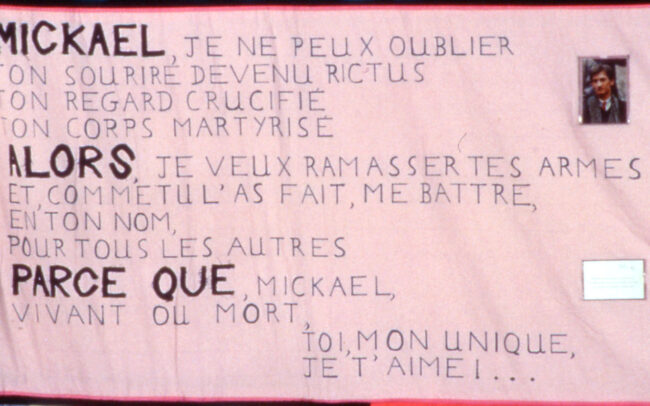 MICKAEL, JE NE PEUX OUBLIER
TON SOURIRE DEVENU RICTUS
TON REGARD CRUCIFIÉ
TON CORPS MARTYRISÉ
ALORS, JE VEUX RAMASSER TES ARMES
ET, COMME TU L'AS FAIT, ME BATTRE,
EN TON NOM,
POUR TOUS LES AUTRES
PARCE QUE, MICKAEL,
VIVANT OU MORT,
TOI, MON UNIQUE,
JE T'AIME!...